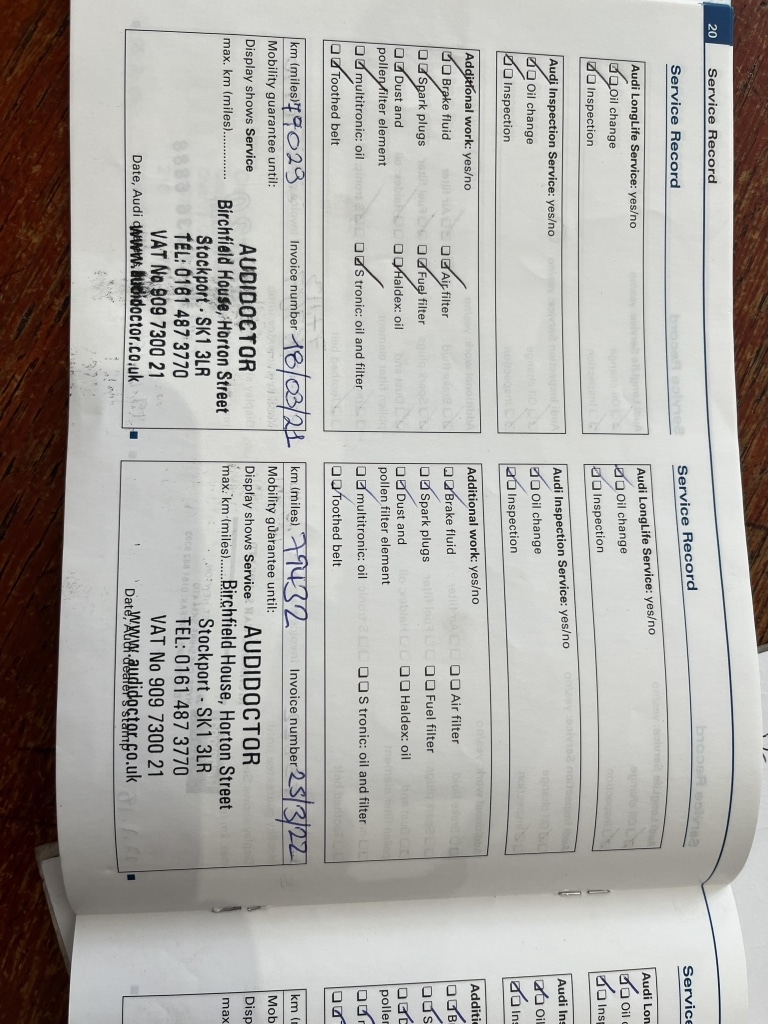 20
Service Record
Service Record
Audi LongLife Service: yes/no
Oil change
Inspection
Audi Inspection Service: yes/no
Oil change
Inspection
Additional work: yes/no
Brake fluid
Air filter
Spark plugs
Fuel filter
Dust and
pollen filter element
Haldex: oil
multitronic: oil
S tronic: oil and filter
Toothed belt
km (miles) 79029
Invoice number 18/03/21
Mobility guarantee until:
Display shows Service
max. km (miles)..............
AUDIDOCTOR
Birchfield House, Horton Street
Stockport - SK1 3LR
TEL: 0161 487 3770
VAT No 909 7300 21
www.audidoctor.co.uk
Date, Audi
Service Record
Audi LongLife Service: yes/no
Oil change
Inspection
Audi Inspection Service: yes/no
Oil change
Inspection
Additional work: yes/no
Brake fluid
Air filter
Spark plugs
Fuel filter
Dust and
pollen filter element
Haldex: oil
multitronic: oil
S tronic: oil and filter
Toothed belt
km (miles) 79432
Invoice number 25/3/22
Mobility guarantee until:
Display shows Service
max. km (miles)......
AUDIDOCTOR
Birchfield House, Horton Street
Stockport - SK1 3LR
TEL: 0161 487 3770
VAT No 909 7300 21
www.audidoctor.co.uk
Date, Audi dealer's stamp
Servic
Audi Lon
Oil
Ins
Audi Ins
Oil
Ins
Additio
B
S
D
pollen
km (
Mob
Disp
max